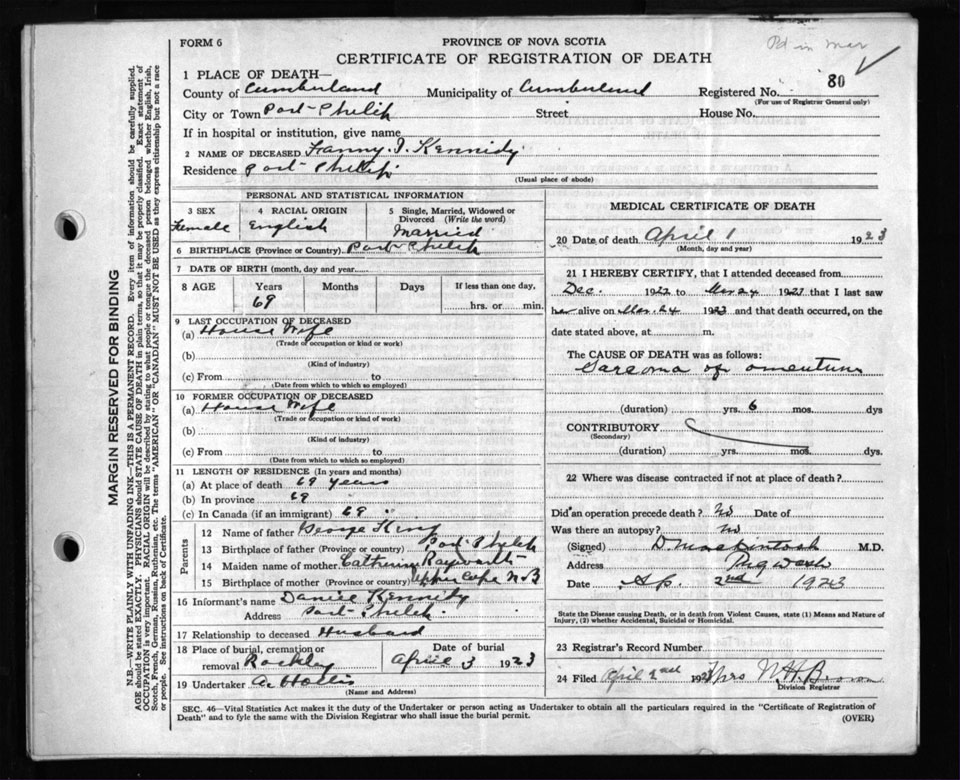 FORM 6
PROVINCE OF NOVA SCOTIA
Pd in mar
CERTIFICATE OF REGISTRATION OF DEATH
80
1 PLACE OF DEATH—
County of Cumberland Municipality of Cumberland Registered No.
(For use of Registrar General only)
City or Town Port-Philip Street House No.
If in hospital or institution, give name
2 NAME OF DECEASED Fanny. I. Kennidy
Residence Port-Philip
(Usual place of abode)
PERSONAL AND STATISTICAL INFORMATION
3 SEX 4 RACIAL ORIGIN 5 Single, Married, Widowed or Divorced (Write the word)
Female English Married
6 BIRTHPLACE (Province or Country) Port-Philip
7 DATE OF BIRTH (month, day and year
8 AGE Years Months Days If less than one day,
69 hrs. or min.
9 LAST OCCUPATION OF DECEASED
(a) House Wife
(Trade or occupation or kind or work)
(b)
(Kind of industry)
(c) From to
(Date from which to which so employed)
10 FORMER OCCUPATION OF DECEASED
(a) House Wife
(Trade or occupation or kind of work)
(b)
(Kind of industry)
(c) From to
(Date from which to which so employed)
11 LENGTH OF RESIDENCE (In years and months)
(a) At place of death 69 years
(b) In province 69
(c) In Canada (if an immigrant) 69
Parents
12 Name of father George King
13 Birthplace of father (Province or country) Port Philip
14 Maiden name of mother Catherine Rayworth
15 Birthplace of mother (Province or country) Upper Cape N.B
16 Informant's name Daniel Kennidy
Address Port-Philip
17 Relationship to deceased Husband
18 Place of burial, cremation or removal Rockley Date of burial April 3 1923
19 Undertaker A. Hollis
(Name and Address)
MEDICAL CERTIFICATE OF DEATH
20 Date of death April 1 1923
(Month, day and year)
21 I HEREBY CERTIFY, that I attended deceased from
Dec. 1922 to Mar 24 1923 that I last saw
her alive on Mar. 24 1923 and that death occurred, on the
date stated above, at m.
The CAUSE OF DEATH was as follows:
Sarcoma of omentum
(duration) yrs. 6 mos. dys
CONTRIBUTORY
(Secondary)
(duration) yrs. mos. dys.
22 Where was disease contracted if not at place of death?
Did an operation precede death? No Date of
Was there an autopsy? No
(Signed) D. Mackintosh M.D.
Address Pugwash
Date Ap. 2nd 1923
State the Disease causing Death, or in death from Violent Causes, state (1) Means and Nature of
Injury, (2) whether Accidental, Suicidal or Homicidal.
23 Registrar's Record Number
24 Filed April 2nd 1923 Mrs N.H. Brown
Division Registrar
SEC. 46—Vital Statistics Act makes it the duty of the Undertaker or person acting as Undertaker to obtain all the particulars required in the "Certificate of Registration of
Death" and to fyle the same with the Division Registrar who shall issue the burial permit.
(OVER)
MARGIN RESERVED FOR BINDING
N.B.—WRITE PLAINLY WITH UNFADING INK—THIS IS A PERMANENT RECORD. Every item of information should be carefully supplied.
AGE should be stated EXACTLY. PHYSICIANS should STATE CAUSE OF DEATH in plain terms, so that it may be properly classified. Exact statement of
OCCUPATION is very important. RACIAL ORIGIN will be described by stating to what people or tongue the deceased person belonged whether English, Irish,
Scotch, French, German, Russian, Ruthenian, etc. The terms "AMERICAN" OR "CANADIAN" MUST NOT BE USED as they express citizenship but not a race
or people. See instructions on back of Certificate.